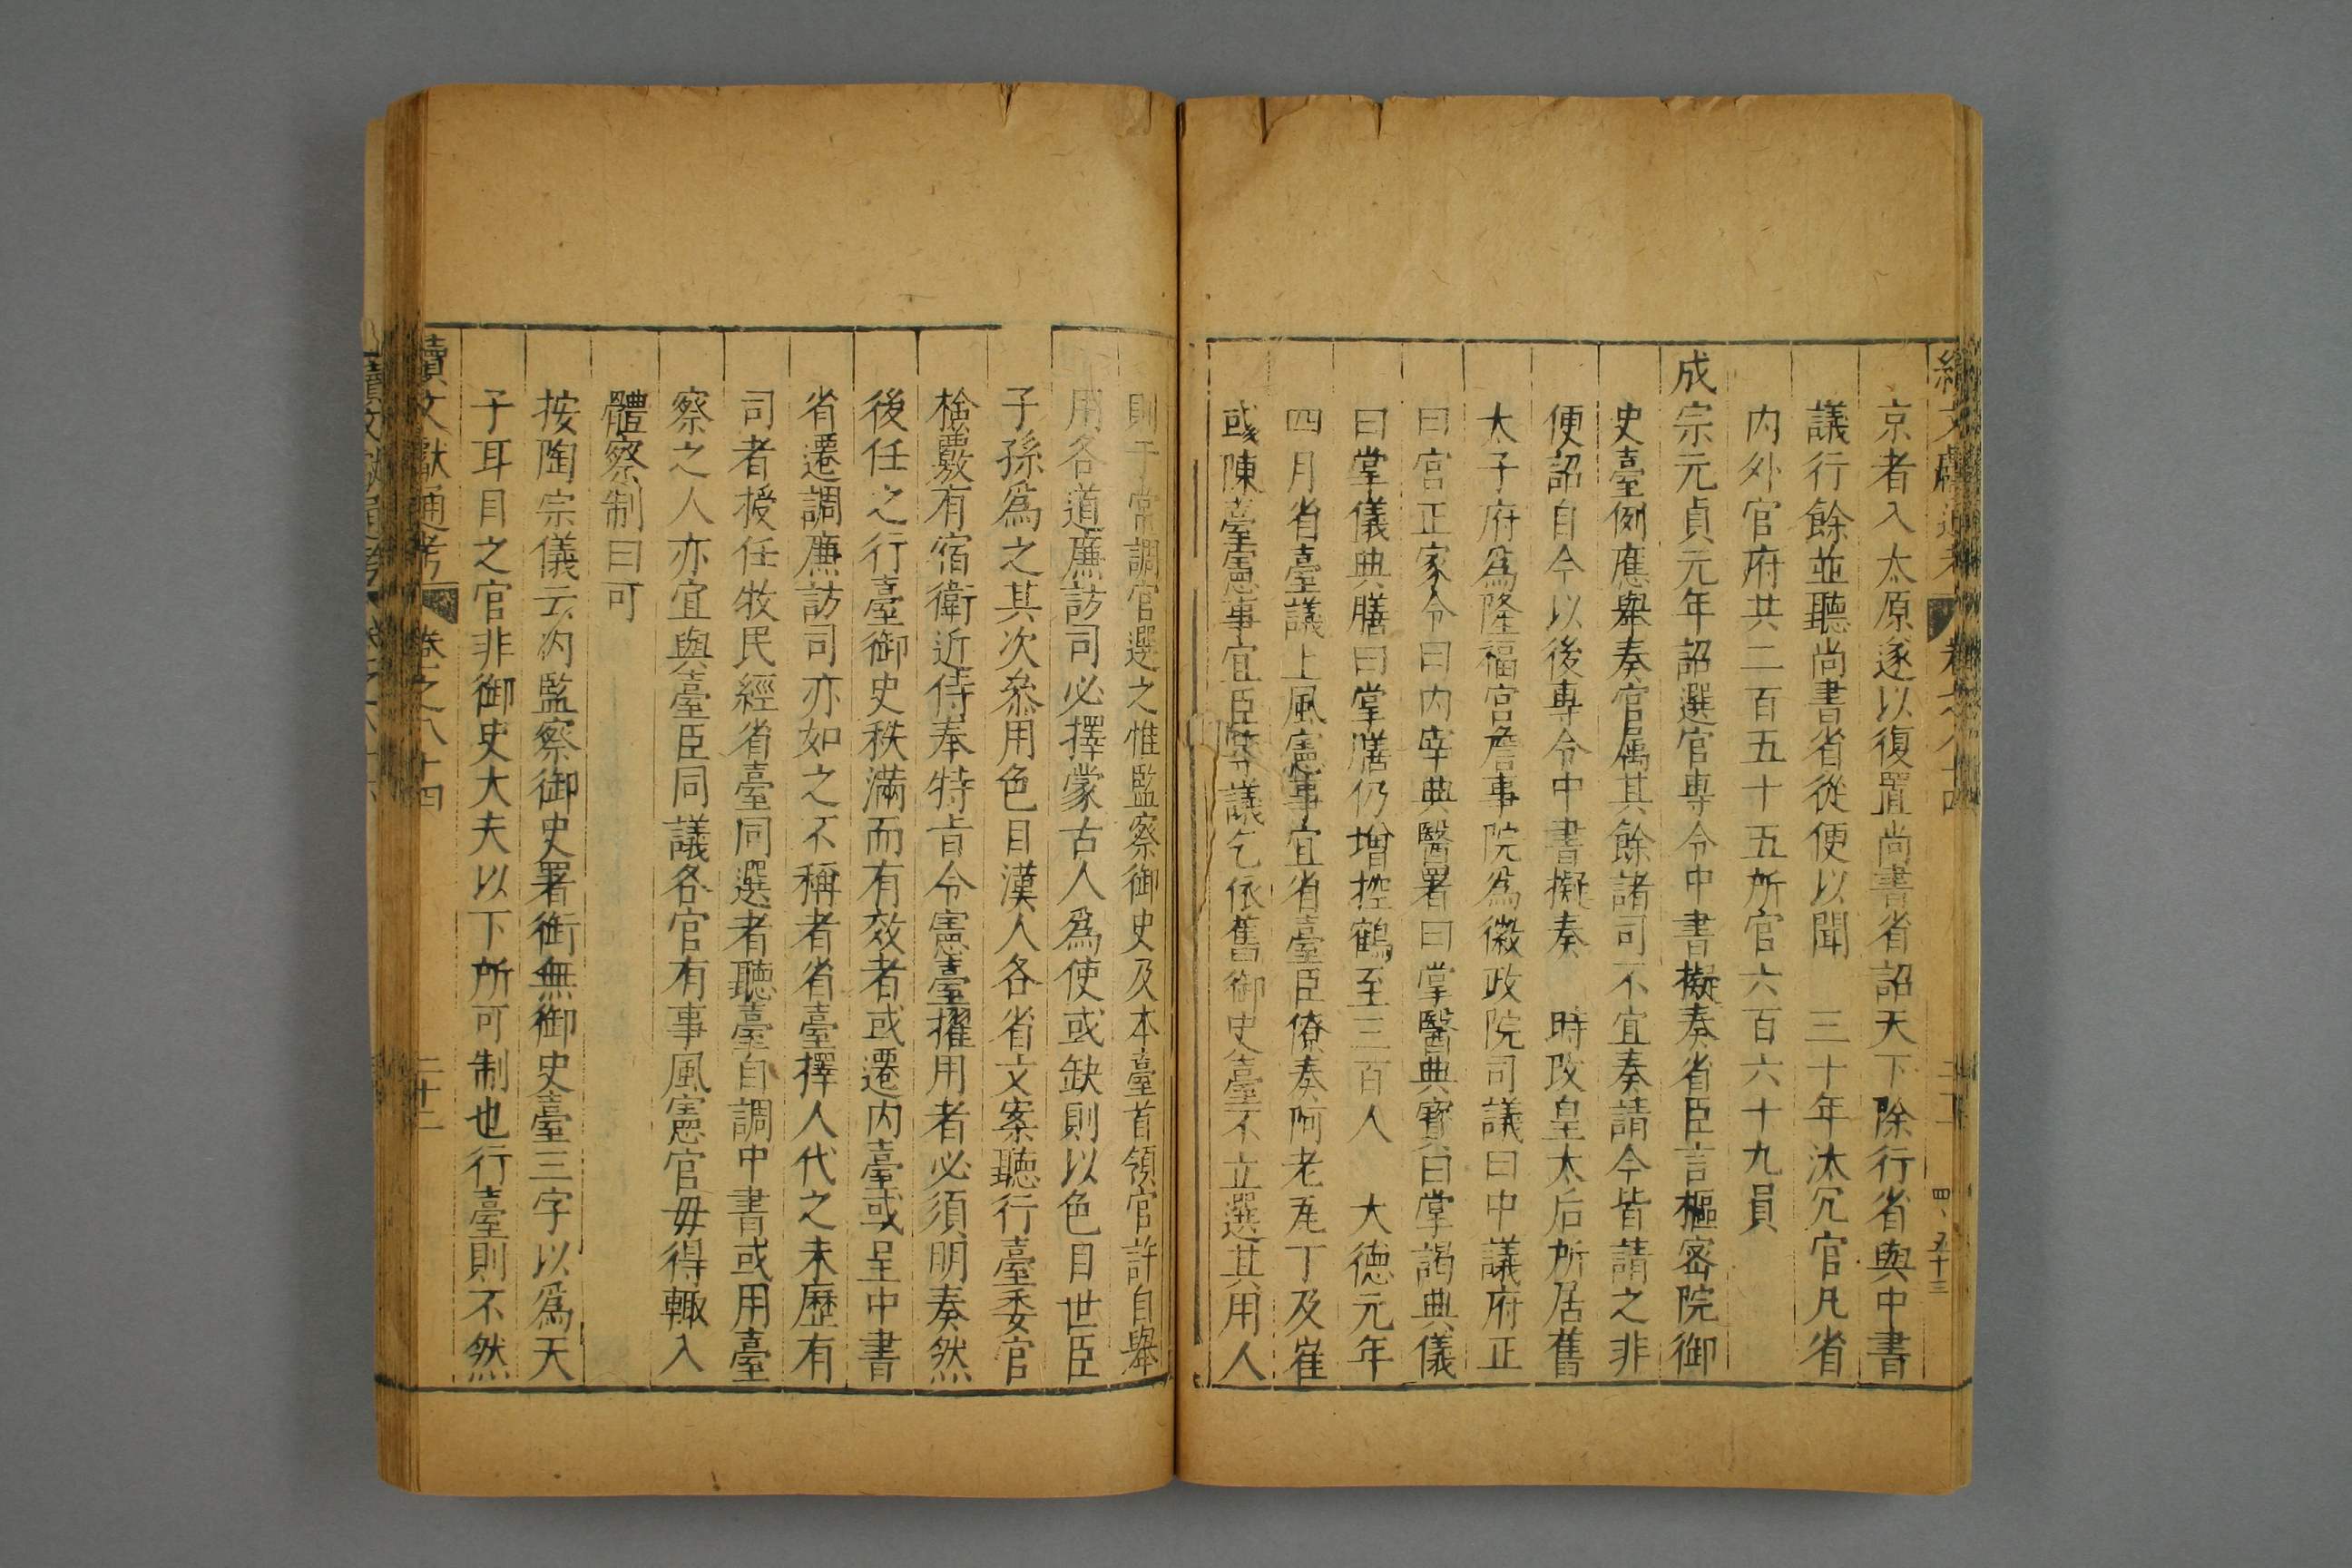 京者入太原遂以復置尚書省詔天下除行省與中書
議行餘並聽尚書省從便以聞　三十年汰冗官凡省
内外官府共二百五十五所官六百六十九員
成宗元貞元年詔選官專令中書擬奏省臣言樞密院御
史臺例應舉奏官属其餘諸司不宜奏請今皆請之非
便詔自今以後專令中書擬奏　時改皇太后所居舊
太子府爲隆福宮詹事院爲徽政院司議曰中議府正
曰宮正家令曰内宰典醫署曰掌醫典寳曰掌謁典儀
曰掌儀典膳曰掌膳仍增控鶴至三百人　大德元年
四月省臺議上風憲事宜省臺臣僚奏阿老瓦丁及崔
彧陳臺憲事宜臣等議乞依舊御史臺不立選其用人
則于常調官選之惟監察御史及本臺首領官許自舉
用各道廉訪司必擇蒙古人爲使或缺則以色目世臣
子孫爲之其次叅用色目漢人各省文案聽行臺委官
檢覈有宿衛近侍奉特旨令憲臺擢用者必須明奏然
後任之行臺御史秩滿而有效者或遷内臺或呈中書
省遷調廉訪司亦如之不稱者省臺擇人代之未歷有
司者授任牧民經省臺同選者聽臺自調中書或用臺
察之人亦宜與臺臣同議各官有事風憲官毋得輙入
體察制曰可
按陶宗儀云内監察御史署銜無御史臺三字以爲天
子耳目之官非御史大夫以下所可制也行臺則不然
續文獻通考　卷之八十四　二十二